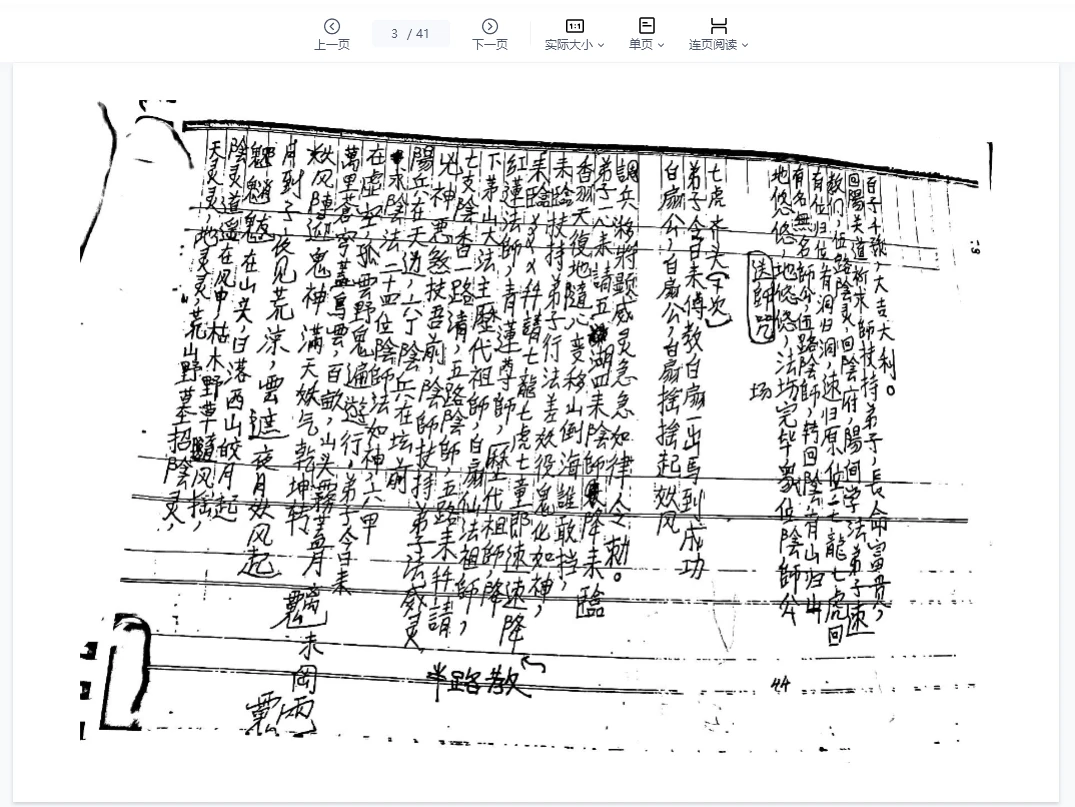 上一页
3 / 41
下一页
实际大小
单页
连页阅读
百子千孫，大吉大利。
回陽关道祈求師扶持弟子，長命富貴，
教们，位路陰灵，回陰府，陽间学法弟子速
有位归位有洞归洞，速归原位，七龍七虎回
有名無名師公，位路陰師，转回陰府有山归山
地悠悠，地悠悠，法坊完毕，眾位陰師公
送師咒
场
44
七虎水头（下次）
弟子今日来傅教白扇一出馬到成功
白扇公，白扇公，白扇搖搖起妖风
調兵移将顕威灵急急如律令勅。
弟子一心来請五湖四来陰師降来臨
香羽天復地隨心变移山倒海誰敢挡，
来臨扶持弟子行法差妖役鬼化如神，
来臨×××拜請七龍七虎七童郎速速降
紅蓮法師，青蓮尊師，歷代祖師，降
下茅山大法主歷代祖師，白扇仙法祖師，
七支陰香一路請，五路陰師，五路来拜請
兇神悪煞扶吾前，陰師扶持弟子法威灵
陽兵在天边，六丁陰兵在坛前
来陰法二十四位陰師法如神，六甲
在虚空孤雲野鬼遍遊行，弟子今日来
萬里蒼穹蓋烏雲，百畝山头霧盖月
妖风陣迎鬼神满天妖气乾坤转
月到子夜见荒涼，雲遮夜月妖风起
魑魅魍魎在山尖，日落西山皎月起
陰灵道還在风中，枯木野草隨风摇，
天灵灵，地灵灵，荒山野墓招陰灵，
半路教
未岡